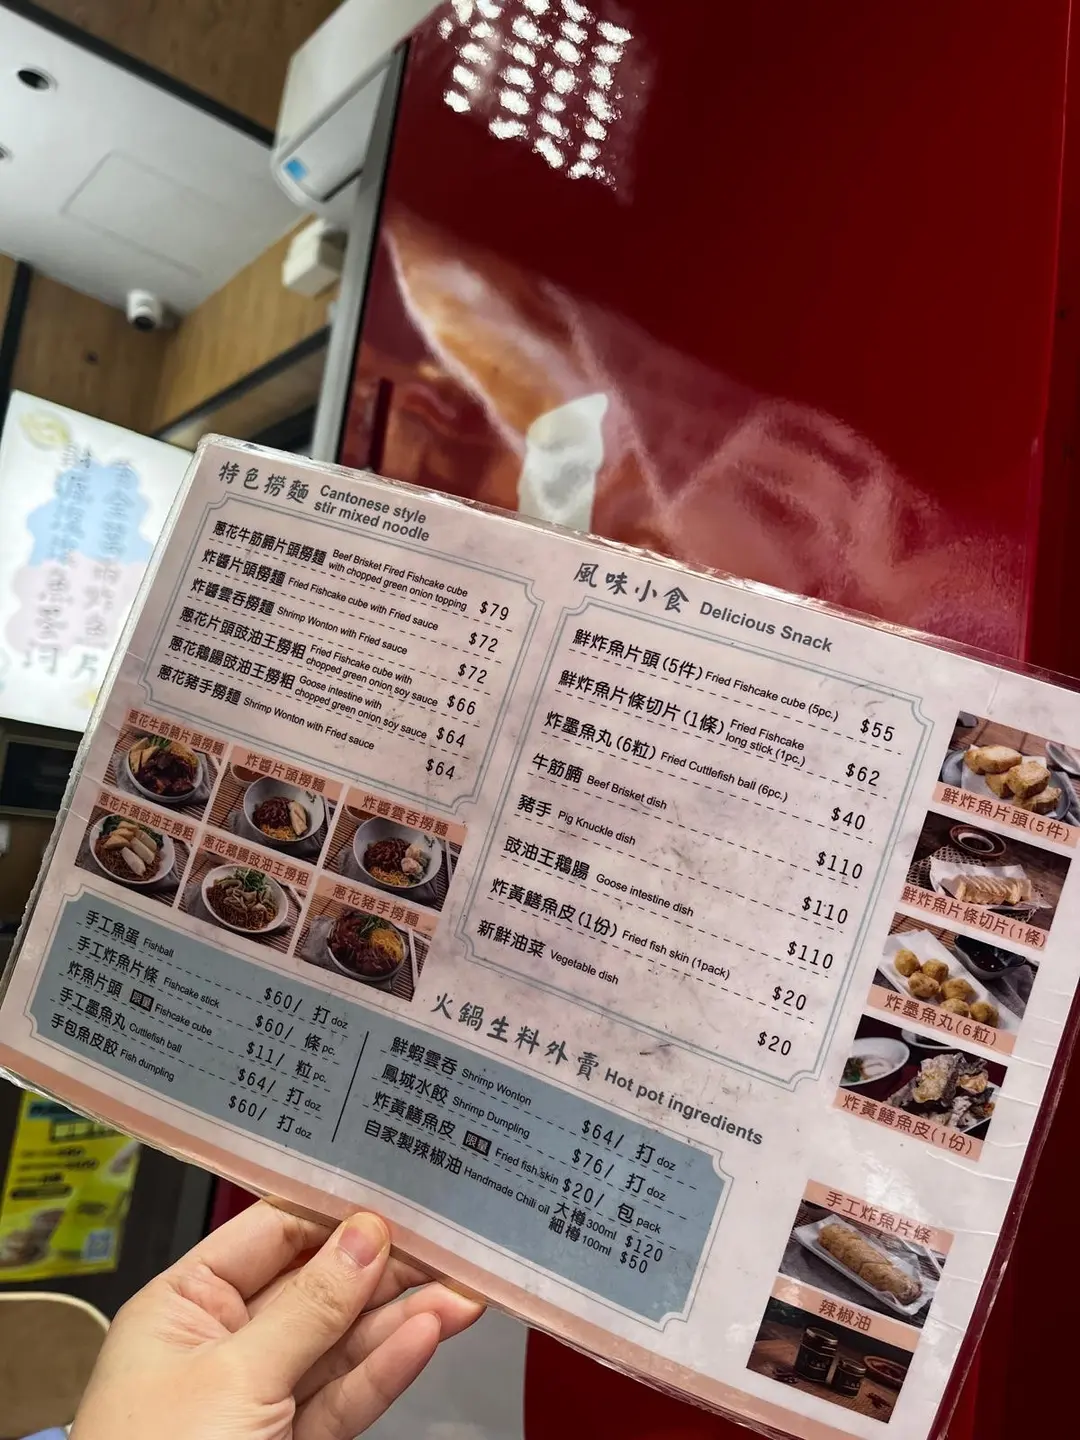 特色撈麵 Cantonese style
stir mixed noodle
蔥花牛筋腩片頭撈麵 Beef Brisket Fired Fishcake cube
with chopped green onion topping $79
炸醬片頭撈麵 Fried Fishcake cube with Fried sauce $72
炸醬雲吞撈麵 Shrimp Wonton with Fried sauce $72
蔥花片頭豉油王撈粗 Fried Fishcake cube with
chopped green onion soy sauce $66
蔥花鵝腸豉油王撈粗 Goose intestine with
chopped green onion soy sauce $64
蔥花豬手撈麵 Shrimp Wonton with Fried sauce $64
蔥花牛筋腩片頭撈麵
炸醬片頭撈麵
炸醬雲吞撈麵
蔥花片頭豉油王撈粗
蔥花鵝腸豉油王撈粗
蔥花豬手撈麵
風味小食 Delicious Snack
鮮炸魚片頭(5件) Fried Fishcake cube (5pc.) $55
鮮炸魚片條切片(1條) Fried Fishcake
long stick (1pc.) $62
炸墨魚丸(6粒) Fried Cuttlefish ball (6pc.) $40
牛筋腩 Beef Brisket dish $110
豬手 Pig Knuckle dish $110
豉油王鵝腸 Goose intestine dish $110
炸黃鱔魚皮(1份) Fried fish skin (1pack) $20
新鮮油菜 Vegetable dish $20
鮮炸魚片頭(5件)
鮮炸魚片條切片(1條)
炸墨魚丸(6粒)
炸黃鱔魚皮(1份)
火鍋生料外賣 Hot pot ingredients
手工魚蛋 Fishball $60/ 打 doz
手工炸魚片條 Fishcake stick $60/ 條 pc.
炸魚片頭 限量 Fishcake cube $11/ 粒 pc.
手工墨魚丸 Cuttlefish ball $64/ 打 doz
手包魚皮餃 Fish dumpling $60/ 打 doz
鮮蝦雲吞 Shrimp Wonton $64/ 打 doz
鳳城水餃 Shrimp Dumpling $76/ 打 doz
炸黃鱔魚皮 限量 Fried fish skin $20/ 包 pack
自家製辣椒油 Handmade Chili oil 大樽 300ml $120
細樽 100ml $50
手工炸魚片條
辣椒油